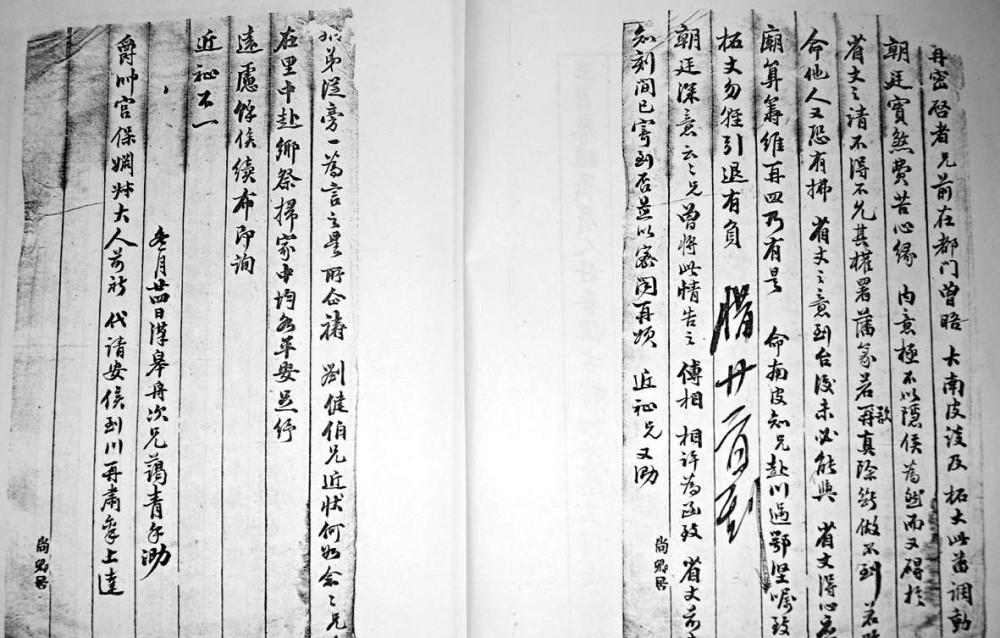 再密啓者兄前在都門曾晤 大南皮談及 拓丈此番調動
朝廷實煞費苦心緣 内意極不以隱侯為然而又礙於
省丈之請不得不允其權署藩篆若再真除斷做不到若
歘
命他人又恐有拂 省丈之意到台後未必能與 省丈得心
廟算籌維再四乃有是 命南皮知兄赴川過鄂堅囑致
拓丈勿輕引退有負 腊廿一到
朝廷深意云云兄曾將此情告之 傅相 相許為函致 省丈
知刻間已寄到否並以密聞再頌 近祉兄又泐
尚賢居
弟從旁一為言之是所企禱 劉健伯兄近狀何如念念兄
在里中赴鄉祭掃家中均各平安足紓
遠慮餘俟續布即詢
近祉不一
冬月廿四日漢皋舟次兄藹青手泐
爵帥宫保姻叔大人前祈 代請安俟到川再肅稟上達
尚賢居